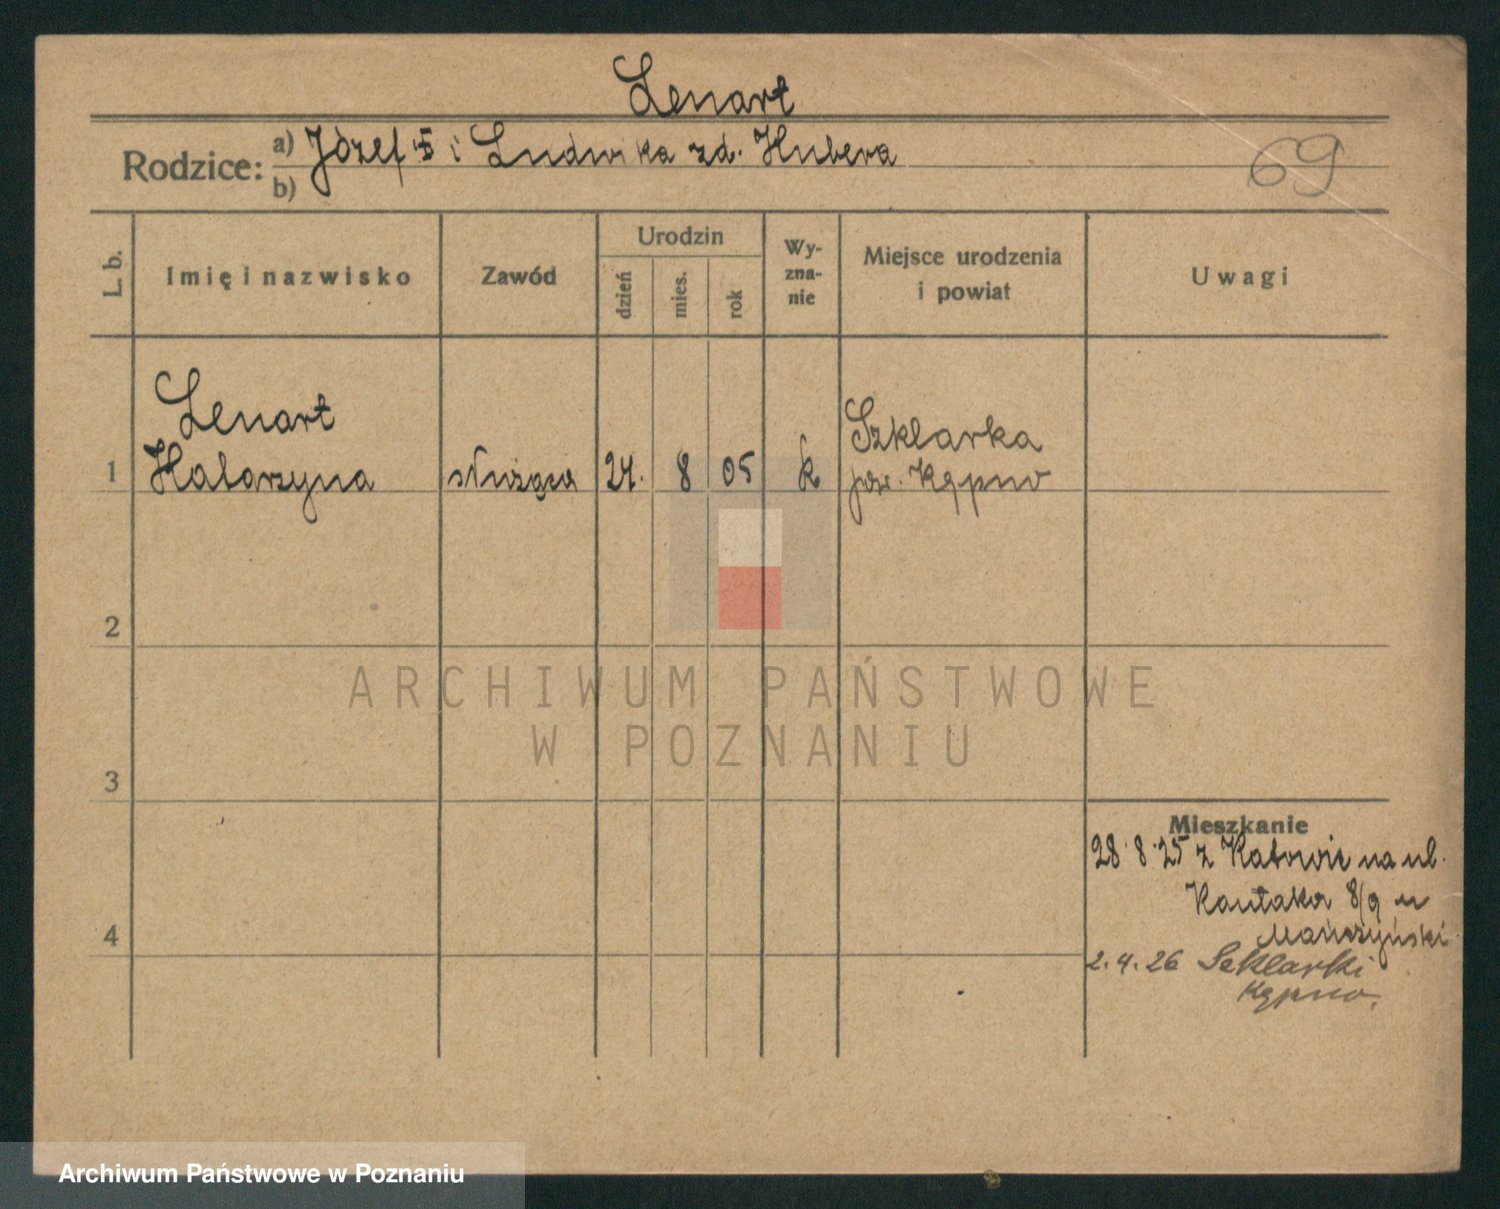 Lenart
Rodzice: a) Józef i Ludwika zd. Hubera
b)
69
L. b.
Imię i nazwisko
Zawód
Urodzin
dzień
mies.
rok
Wy-
zna-
nie
Miejsce urodzenia
i powiat
Uwagi
Lenart
1 Katarzyna służąca 24. 8 05 k Szklarka
pow. Kępno
2
3
4
Mieszkanie
28.8.25 z Katowic na ul.
Kantaka 8/9 u
2.4.26 Szklarki
Kępno.
ARCHIWUM PAŃSTWOWE
W POZNANIU
Archiwum Państwowe w Poznaniu